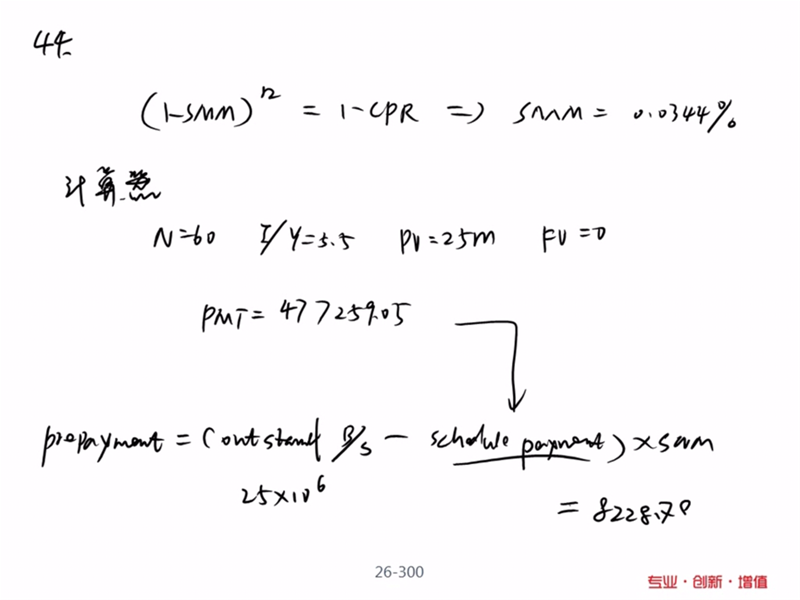 44.
(1-SMM)^12 = 1-CPR => SMM = 0.0344%
计算器
N=60 I/Y=5.5 PV=25M FV=0
PMT = 477259.05
prepayment = (outstand B/S - schedule payment) × SMM
25×10^6
= 8228.70
26-300
专业·创新·增值